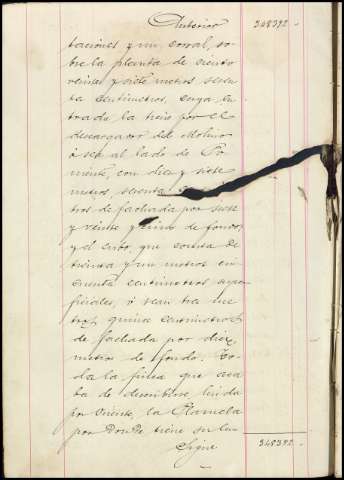 Anterior 348392.-
taciones y un corral, so-
bre la planta de ciento
veinte y siete metros seten-
ta centímetros, cuya en-
trada la tiene por el
descargador del Molino
ó sea al lado de Po-
niente, con diez y siete
metros setenta
tros de fachada por siete
y veinte y uno de fondo,
y el cubo que consta de
treinta y un metros cin-
cuenta centímetros super-
ficiales, ó sean tres me-
tros quince centímetros
de fachada por diez
metros de fondo. To-
da la finca que aca-
ba de describirse linda
por Oriente, la Plazuela
por Donde tiene su
Sigue 348392.-